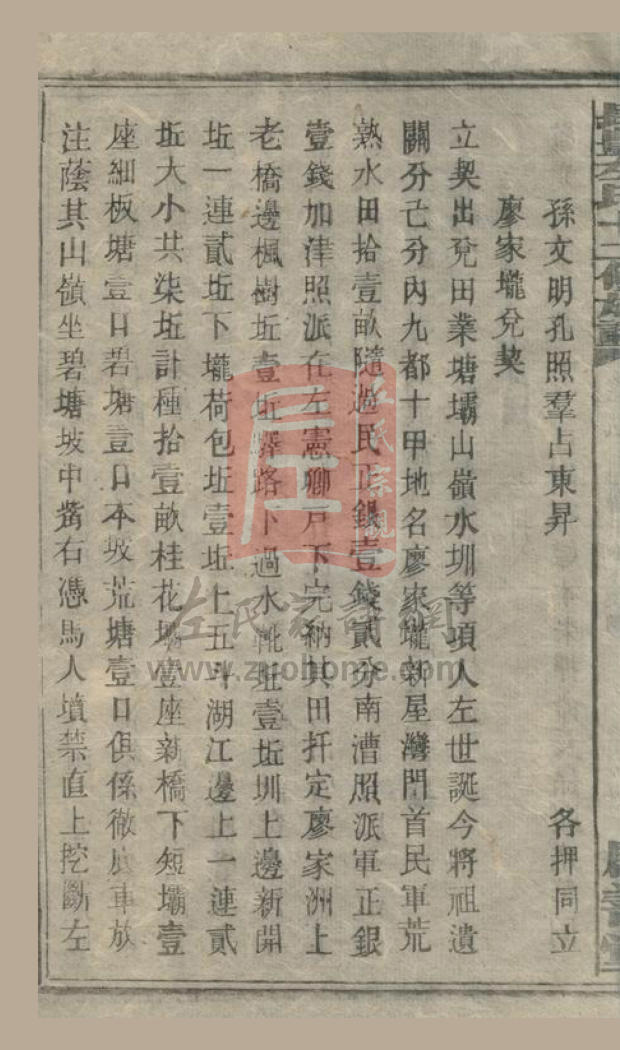 孫文明孔照羣占東昇　各押同立
廖家壠兌契
立契出兌田業塘壩山嶺水圳等項人左世誕今將祖遺
關分己分內九都十甲地名廖家壠新屋灣門首民軍荒
熟水田拾壹畝隨過民正銀壹錢貳分南漕照派軍正銀
壹錢加津照派在左憲卿戸下完納其田扦定廖家洲上
老橋邊楓樹坵壹坵驛路下過水靴坵壹坵圳上邊新開
坵一連貳坵下壠荷包坵壹坵上五斗湖江邊上一連貳
坵大小共柒坵計種拾壹畝桂花壩壹座新橋下短壩壹
座細板塘壹口碧塘壹口本坡荒塘壹口俱係徹底車放
注蔭其山嶺坐碧塘坡中嵛右憑馬人墳禁直上挖斷左
左氏宗親
左氏宗譜網